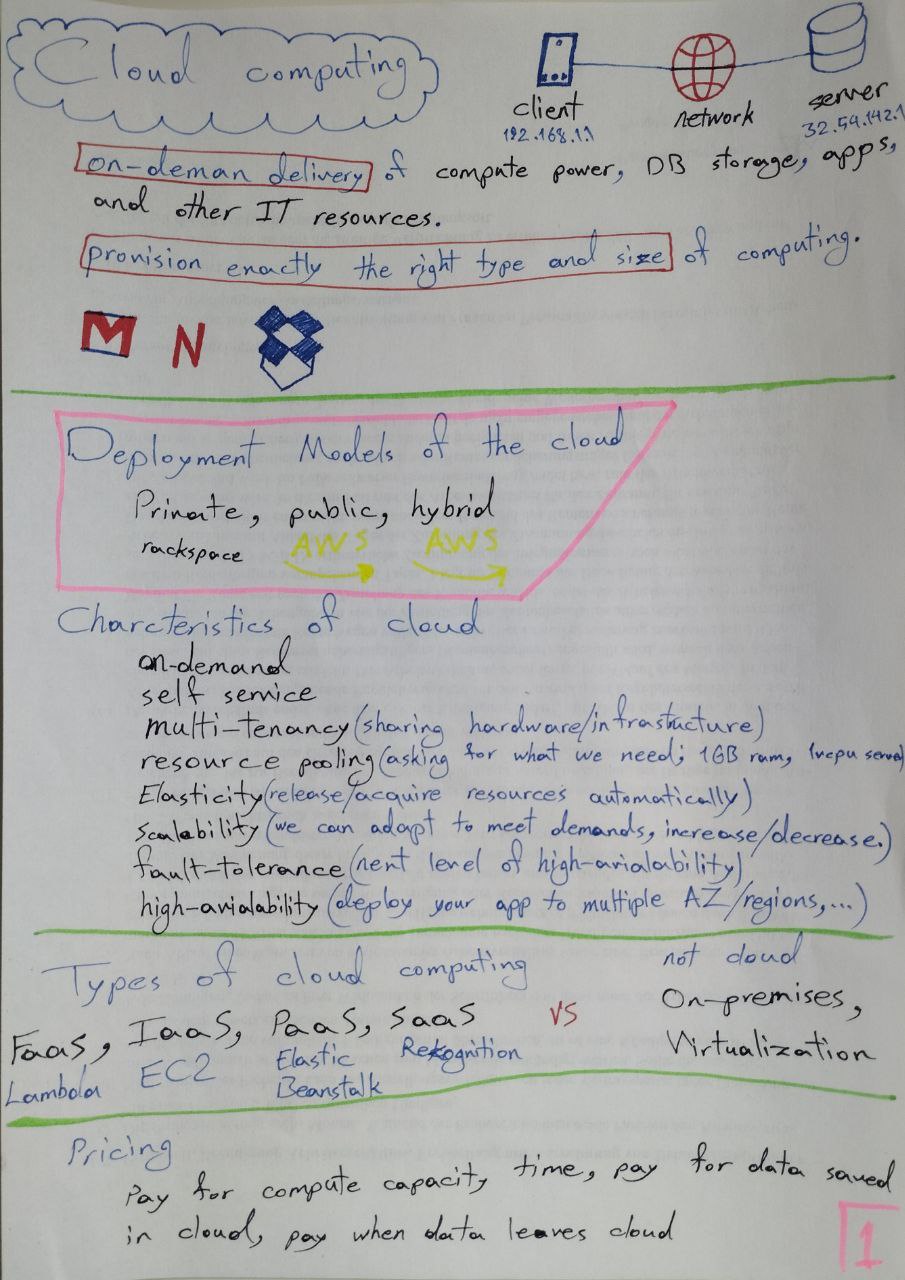 Cloud computing
client
192.168.1.1
network
server
32.54.142.1
on-deman delivery of compute power, DB storage, apps,
and other IT resources.
provision enactly the right type and size of computing.
M N
Deployment Models of the cloud
Private, public, hybrid
rackspace AWS AWS
Charcteristics of cloud
on-demand
self service
multi-tenancy (sharing hardware/infrastucture)
resource pooling (asking for what we need; 1GB ram, 1vcpu server)
Elasticity (release/acquire resources automatically)
Scalability (we can adapt to meet demands, increase/decrease.)
fault-tolerance (nent level of high-avialability)
high-avialability (deploy your app to multiple AZ/regions,...)
Types of cloud computing
FaaS, IaaS, PaaS, SaaS
Lambda EC2 Elastic Beanstalk Rekognition
VS
not cloud
On-premises,
Virtualization
Pricing
Pay for compute capacity time, pay for data saved
in cloud, pay when data leaves cloud
1